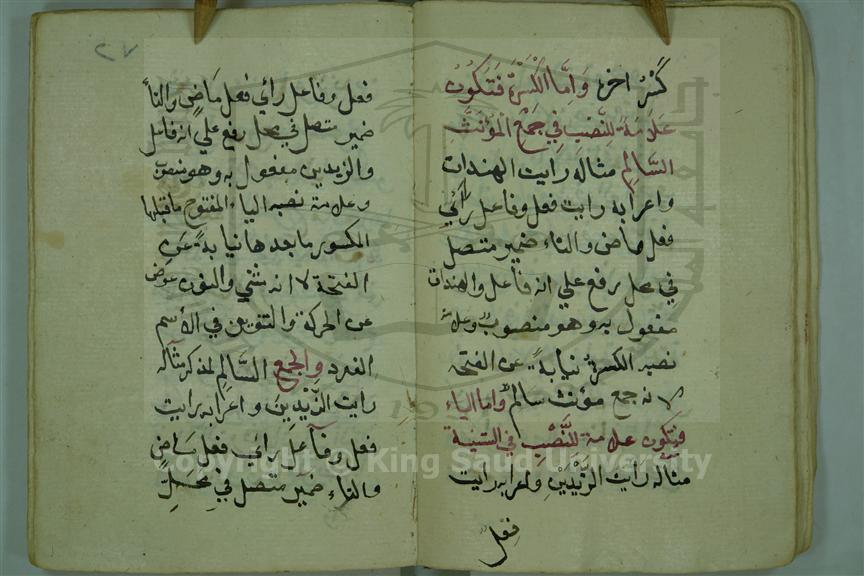 وَاِمَّا الْكَسْرَةُ فَتَكُونُ
عَلَامَةً لِلنَّصْبِ فِي جَمْعِ الْمُؤَنَّثِ
السَّالِمِ مثاله رايت الهندات
واعرابه رايت فعل وفاعل رائي
فعل ماض والتاء ضمير متصل
في محل رفع علي انه فاعل والهندات
مفعول به وهو منصوب وعلامة
نصبه الكسرة نيابة عن الفتحه
لانه جمع مؤنث سالم واما الياء
فتكون علامة للنَّصْبِ في التثنية
مثاله رايت الزَّيْدَيْنِ واعرابه رايت
فعل
٢٧
فعل وفاعل رائي فعل ماضي والتاء
ضمير متصل في محل رفع علي انه فاعل
والزيدين مفعول به وهو منصوب
وعلامة نصبه الياء المفتوح ماقبلها
المكسور مابعدها نيابة عن
الفتحة لانه مثني والنون عوض
عن الحركة والتنوين في الاسم
المفرد والجمع السَّالم المذكر مثاله
رايت الزَّيْدِينَ واعرابه رايت
فعل وفاعل رائي فعل ماض
والتاء ضمير متصل في محل
Copyright © King Saud University